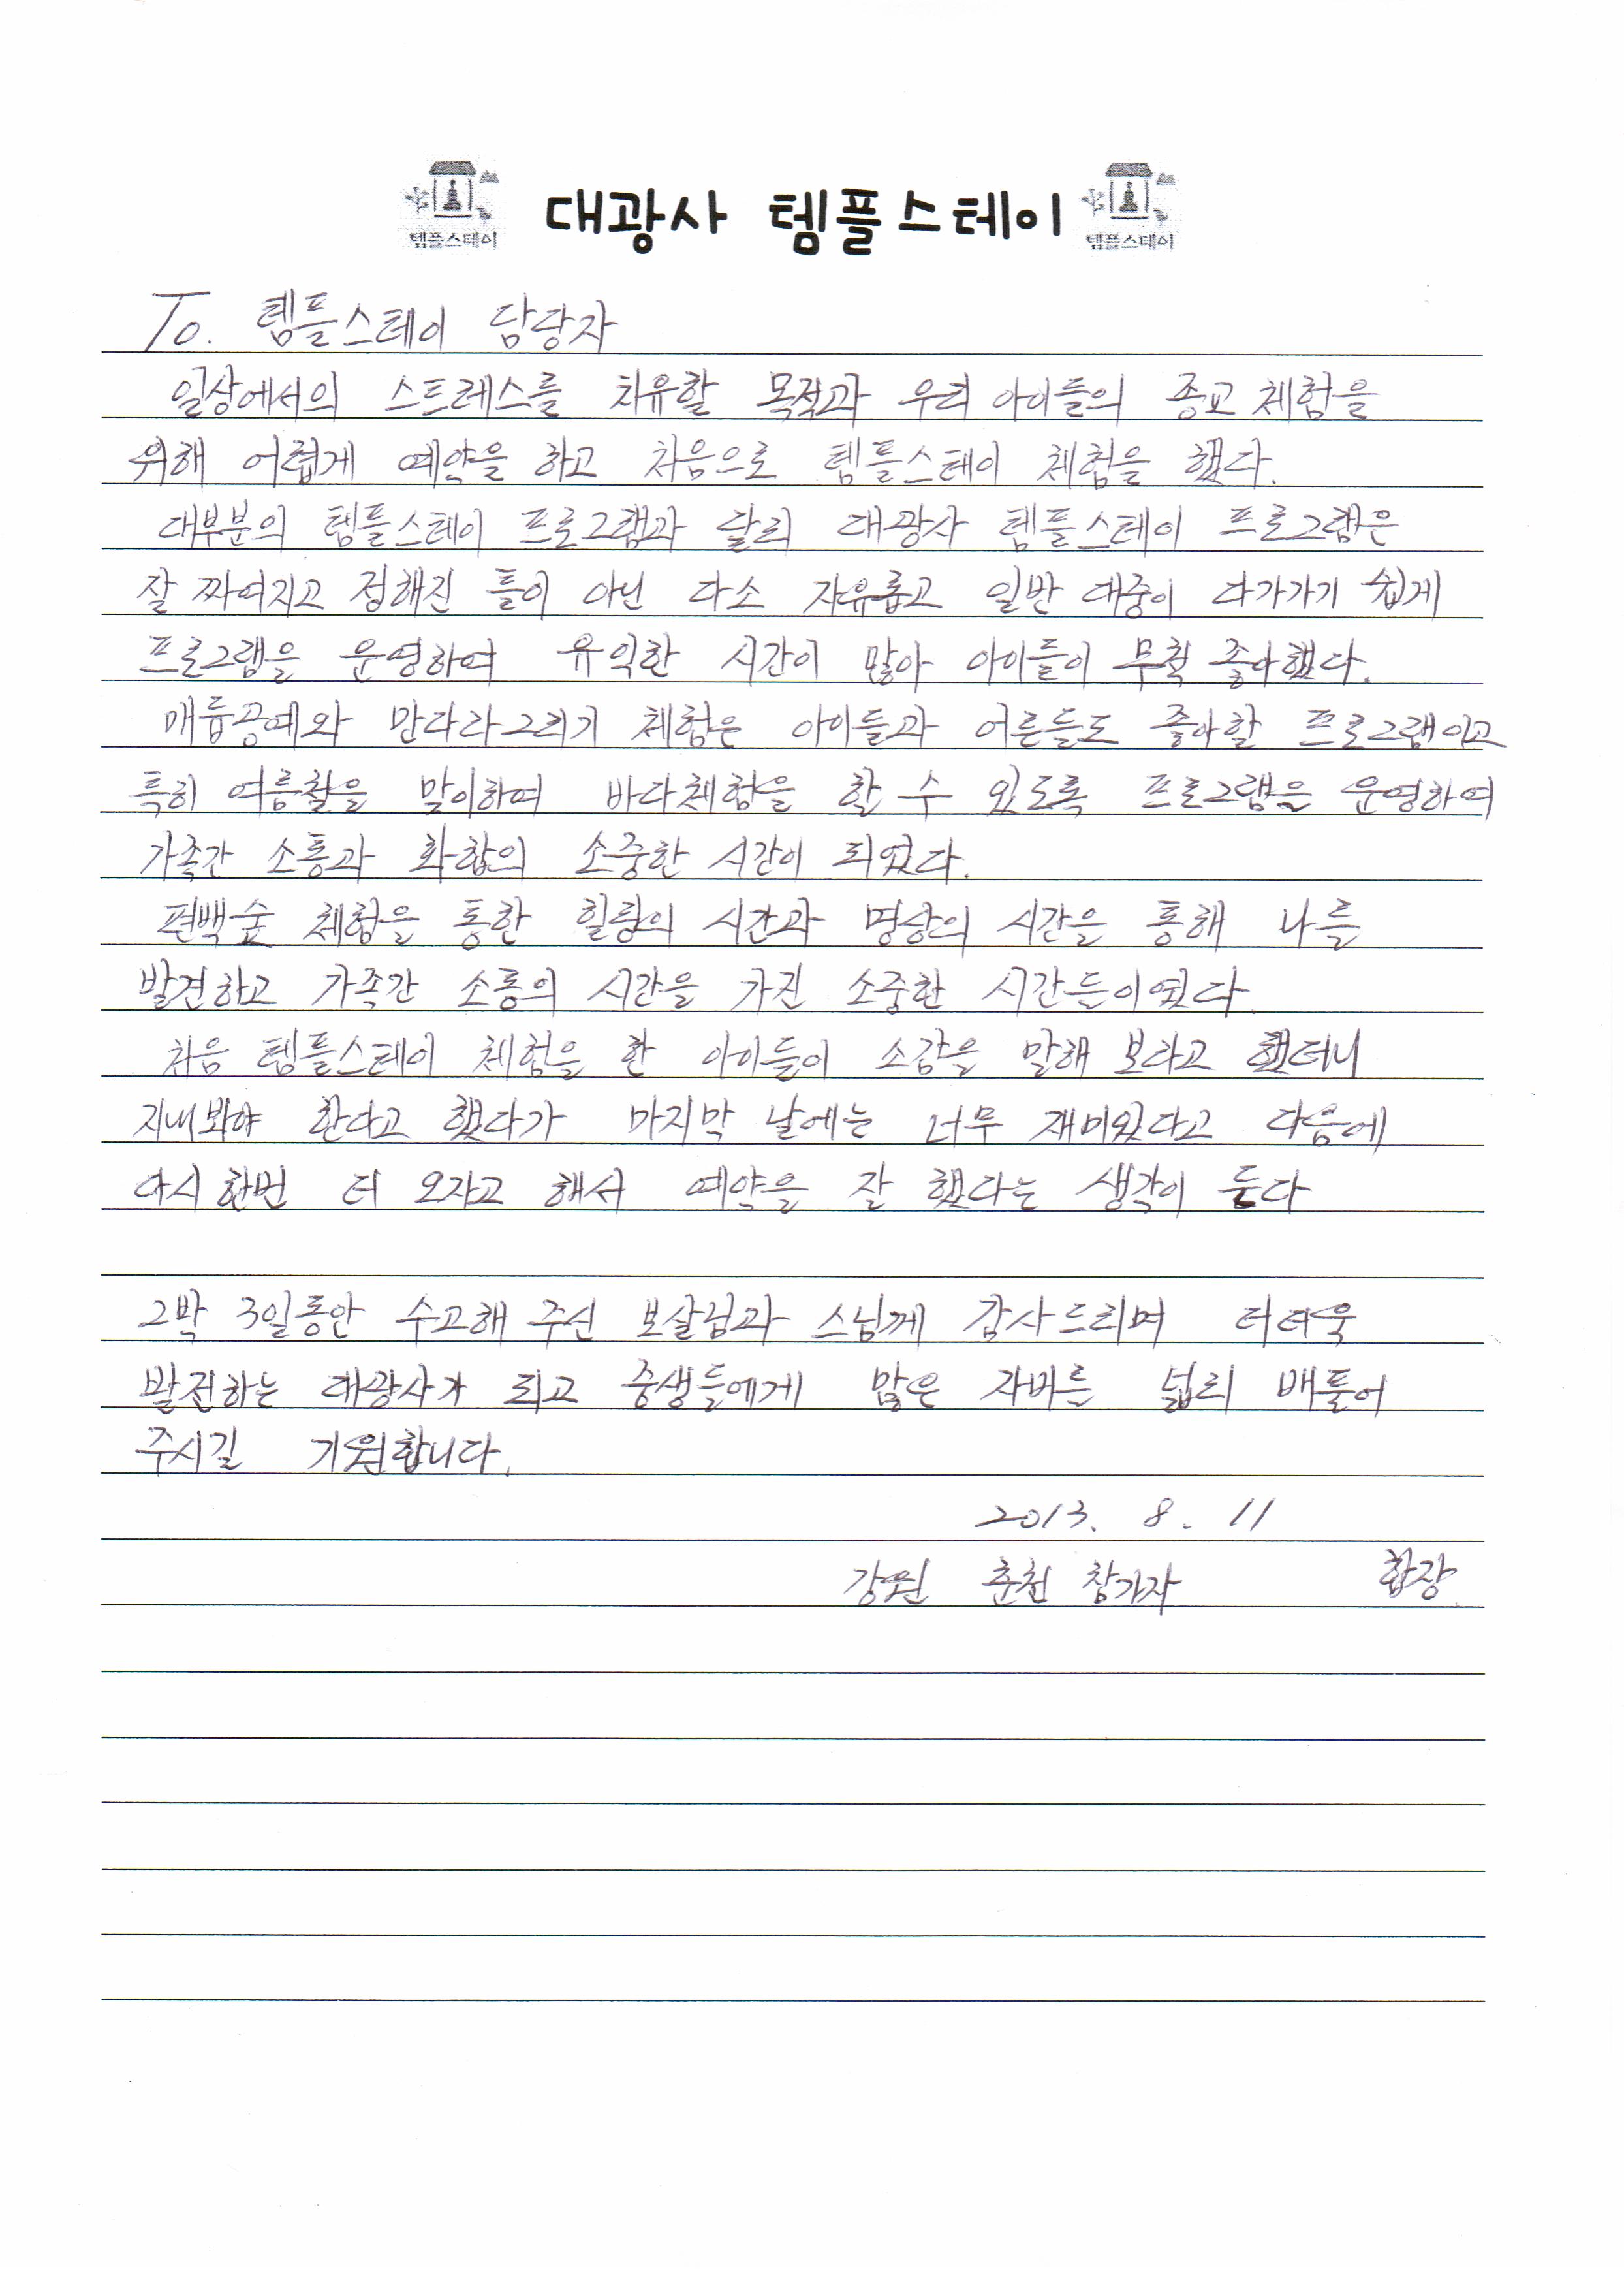 템플스테이 대광사 템플스테이 템플스테이
To. 템플스테이 담당자
일상에서의 스트레스를 치유할 목적과 우리 아이들의 종교 체험을
위해 어렵게 예약을 하고 처음으로 템플스테이 체험을 했다.
대부분의 템플스테이 프로그램과 달리 대광사 템플스테이 프로그램은
잘 짜여지고 정해진 틀이 아닌 다소 자유롭고 일반 대중이 다가가기 쉽게
프로그램을 운영하여 유익한 시간이 많아 아이들이 무척 좋아했다.
매듭공예와 만다라그리기 체험은 아이들과 어른들도 좋아할 프로그램이고
특히 여름철을 맞이하여 바다체험을 할 수 있도록 프로그램을 운영하여
가족간 소통과 화합의 소중한 시간이 되었다.
편백숲 체험을 통한 힐링의 시간과 명상의 시간을 통해 나를
발견하고 가족간 소통의 시간을 가진 소중한 시간들이였다.
처음 템플스테이 체험을 한 아이들이 소감을 말해 보라고 했더니
지내봐야 한다고 했다가 마지막 날에는 너무 재미있다고 다음에
다시 한번 더 오자고 해서 예약을 잘 했다는 생각이 든다
2박 3일동안 수고해 주신 보살님과 스님께 감사드리며 더더욱
발전하는 대광사가 되고 중생들에게 많은 자비를 널리 배풀어
주시길 기원합니다.
2013. 8. 11
강원 춘천 참가자 합장.